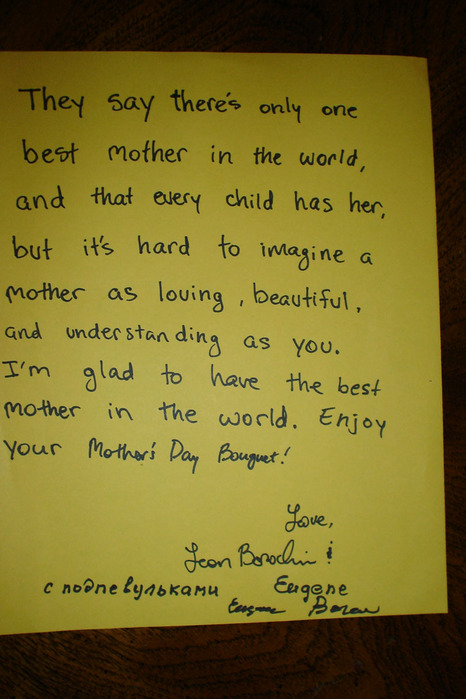 They say there's only one
best mother in the world,
and that every child has her,
but it's hard to imagine a
mother as loving, beautiful,
and understanding as you.
I'm glad to have the best
mother in the world. Enjoy
your Mother's Day Bouquet!
Love,
Leon Borochin &
с подпевульками Eugene
Eugene